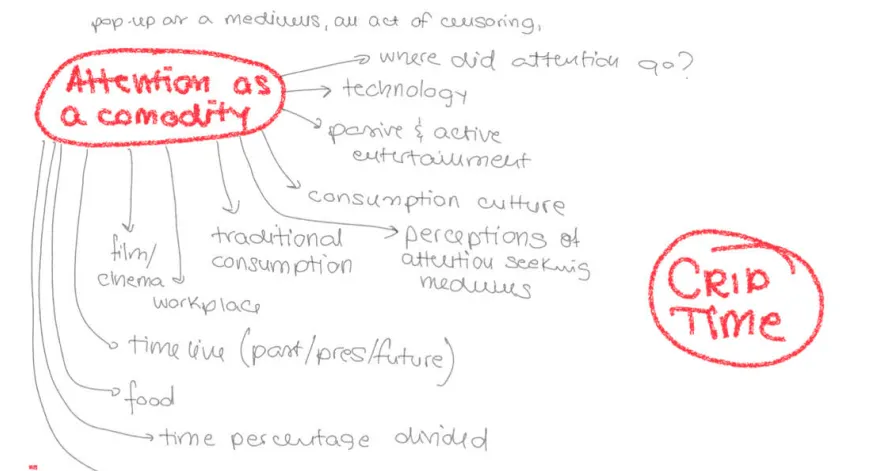 pop-up as a mediums, an act of censoring,
where did attention go?
Attention as
a comodity
technology
passive & active
entertainment
consumption culture
traditional
consumption
perceptions of
attention seeking
mediums
film/
cinema
workplace
CRIP
TIME
time live (past/pres/future)
food
time percentage divided